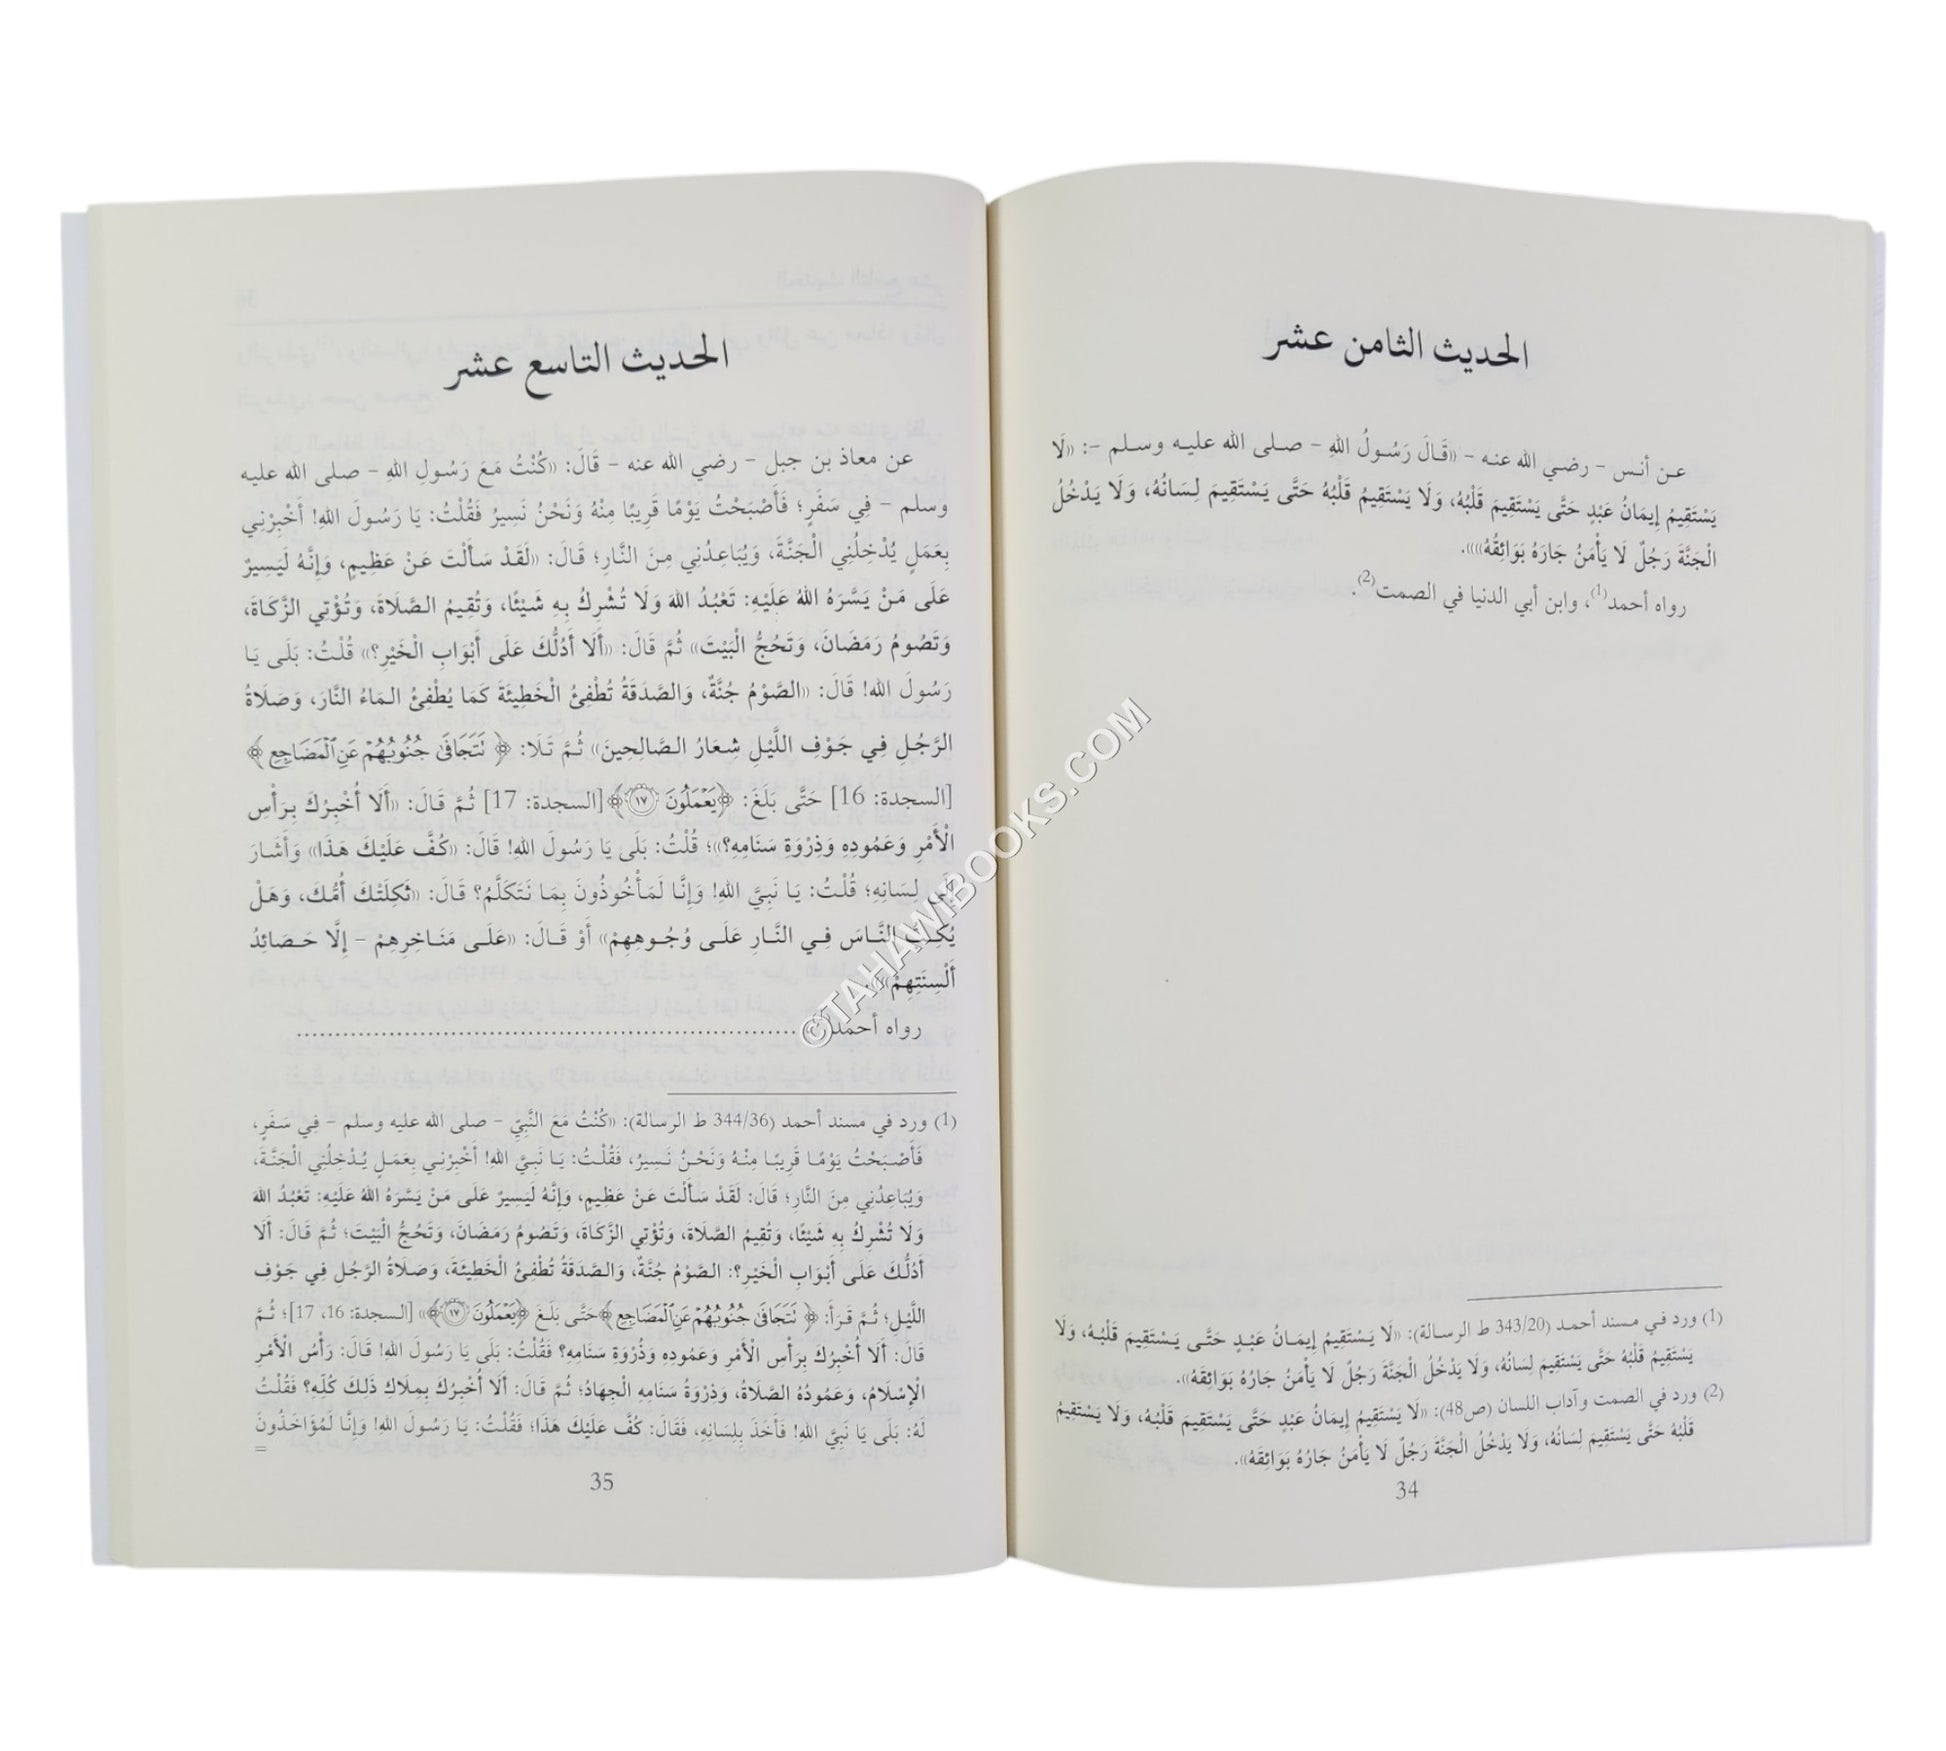 الحديث الثامن عشر
عن أنس – رضي الله عنه – «قَالَ رَسُولُ اللهِ – صلى الله عليه وسلم –: «لَا
يَسْتَقِيمُ إِيمَانُ عَبْدٍ حَتَّى يَسْتَقِيمَ قَلْبُهُ، وَلَا يَسْتَقِيمُ قَلْبُهُ حَتَّى يَسْتَقِيمَ لِسَانُهُ، وَلَا يَدْخُلُ
الْجَنَّةَ رَجُلٌ لَا يَأْمَنُ جَارَهُ بَوَائِقُهُ»».
رواه أحمد(1)، وابن أبي الدنيا في الصمت(2).
(1) ورد في مسند أحمد (343/20 ط الرسالة): «لَا يَسْتَقِيمُ إِيمَانُ عَبْدٍ حَتَّى يَسْتَقِيمَ قَلْبُهُ، وَلَا
يَسْتَقِيمُ قَلْبُهُ حَتَّى يَسْتَقِيمَ لِسَانُهُ، وَلَا يَدْخُلُ الْجَنَّةَ رَجُلٌ لَا يَأْمَنُ جَارُهُ بَوَائِقَهُ».
(2) ورد في الصمت وآداب اللسان (ص48): «لَا يَسْتَقِيمُ إِيمَانُ عَبْدٍ حَتَّى يَسْتَقِيمَ قَلْبُهُ، وَلَا يَسْتَقِيمُ
قَلْبُهُ حَتَّى يَسْتَقِيمَ لِسَانُهُ، وَلَا يَدْخُلُ الْجَنَّةَ رَجُلٌ لَا يَأْمَنُ جَارُهُ بَوَائِقَهُ».
34
الحديث التاسع عشر
عن معاذ بن جبل – رضي الله عنه – قَالَ: «كُنْتُ مَعَ رَسُولِ اللهِ – صلى الله عليه
وسلم – فِي سَفَرٍ؛ فَأَصْبَحْتُ يَوْمًا قَرِيبًا مِنْهُ وَنَحْنُ نَسِيرُ فَقُلْتُ: يَا رَسُولَ اللهِ! أَخْبِرْنِي
بِعَمَلٍ يُدْخِلُنِي الْجَنَّةَ، وَيُبَاعِدُنِي مِنَ النَّارِ؛ قَالَ: «لَقَدْ سَأَلْتَ عَنْ عَظِيمٍ، وَإِنَّهُ لَيَسِيرٌ
عَلَى مَنْ يَسَّرَهُ اللهُ عَلَيْهِ: تَعْبُدُ اللهَ وَلَا تُشْرِكُ بِهِ شَيْئًا، وَتُقِيمُ الصَّلَاةَ، وَتُؤْتِي الزَّكَاةَ،
وَتَصُومُ رَمَضَانَ، وَتَحُجُّ الْبَيْتَ» ثُمَّ قَالَ: «أَلَا أَدُلُّكَ عَلَى أَبْوَابِ الْخَيْرِ؟» قُلْتُ: بَلَى يَا
رَسُولَ اللهِ! قَالَ: «الصَّوْمُ جُنَّةٌ، وَالصَّدَقَةُ تُطْفِئُ الْخَطِيئَةَ كَمَا يُطْفِئُ المَاءُ النَّارَ، وَصَلَاةُ
الرَّجُلِ فِي جَوْفِ اللَّيْلِ شِعَارُ الصَّالِحِينَ» ثُمَّ تَلَا: ﴿ نَتَجَافَىٰ جُنُوبُهُمْ عَنِ ٱلْمَضَاجِعِ ﴾
[السجدة: 16] حَتَّى بَلَغَ: ﴿يَعْمَلُونَ ١٧﴾[السجدة: 17] ثُمَّ قَالَ: «أَلَا أُخْبِرُكَ بِرَأْسِ
الْأَمْرِ وَعَمُودِهِ وَذِرْوَةِ سَنَامِهِ؟»؛ قُلْتُ: بَلَى يَا رَسُولَ اللهِ! قَالَ: «كُفَّ عَلَيْكَ هَذَا» وَأَشَارَ
إِلَى لِسَانِهِ؛ قُلْتُ: يَا نَبِيَّ اللهِ! وَإِنَّا لَمَأْخُوذُونَ بِمَا نَتَكَلَّمُ؟ قَالَ: «ثَكِلَتْكَ أُمُّكَ، وَهَلْ
يُكِبُّ النَّاسَ فِي النَّارِ عَلَى وُجُوهِهِمْ» أَوْ قَالَ: «عَلَى مَنَاخِرِهِمْ – إِلَّا حَصَائِدُ
أَلْسِنَتِهِمْ»».
رواه أحمد
(1) ورد في مسند أحمد (344/36 ط الرسالة): «كُنْتُ مَعَ النَّبِيِّ – صلى الله عليه وسلم – فِي سَفَرٍ،
فَأَصْبَحْتُ يَوْمًا قَرِيبًا مِنْهُ وَنَحْنُ نَسِيرُ، فَقُلْتُ: يَا نَبِيَّ اللهِ! أَخْبِرْنِي بِعَمَلٍ يُدْخِلُنِي الْجَنَّةَ،
وَيُبَاعِدُنِي مِنَ النَّارِ؛ قَالَ: لَقَدْ سَأَلْتَ عَنْ عَظِيمٍ، وَإِنَّهُ لَيَسِيرٌ عَلَى مَنْ يَسَّرَهُ اللهُ عَلَيْهِ: تَعْبُدُ اللهَ
وَلَا تُشْرِكُ بِهِ شَيْئًا، وَتُقِيمُ الصَّلَاةَ، وَتُؤْتِي الزَّكَاةَ، وَتَصُومُ رَمَضَانَ، وَتَحُجُّ الْبَيْتَ؛ ثُمَّ قَالَ: أَلَا
أَدُلُّكَ عَلَى أَبْوَابِ الْخَيْرِ؟: الصَّوْمُ جُنَّةٌ، وَالصَّدَقَةُ تُطْفِئُ الْخَطِيئَةَ، وَصَلَاةُ الرَّجُلِ فِي جَوْفِ
اللَّيْلِ؛ ثُمَّ قَرَأَ: ﴿ نَتَجَافَىٰ جُنُوبُهُمْ عَنِ ٱلْمَضَاجِعِ ﴾حَتَّى بَلَغَ ﴿يَعْمَلُونَ ١٧﴾» [السجدة: 16، 17]؛ ثُمَّ
قَالَ: أَلَا أُخْبِرُكَ بِرَأْسِ الْأَمْرِ وَعَمُودِهِ وَذُرْوَةِ سَنَامِهِ؟ فَقُلْتُ: بَلَى يَا رَسُولَ اللهِ! قَالَ: رَأْسُ الْأَمْرِ
الْإِسْلَامُ، وَعَمُودُهُ الصَّلَاةُ، وَذِرْوَةُ سَنَامِهِ الْجِهَادُ؛ ثُمَّ قَالَ: أَلَا أُخْبِرُكَ بِمِلَاكِ ذَلِكَ كُلِّهِ؟ فَقُلْتُ
لَهُ: بَلَى يَا نَبِيَّ اللهِ! فَأَخَذَ بِلِسَانِهِ، فَقَالَ: كُفَّ عَلَيْكَ هَذَا؛ فَقُلْتُ: يَا رَسُولَ اللهِ! وَإِنَّا لَمُؤَاخَذُونَ
=
35
©TAHAWIBOOKS.COM